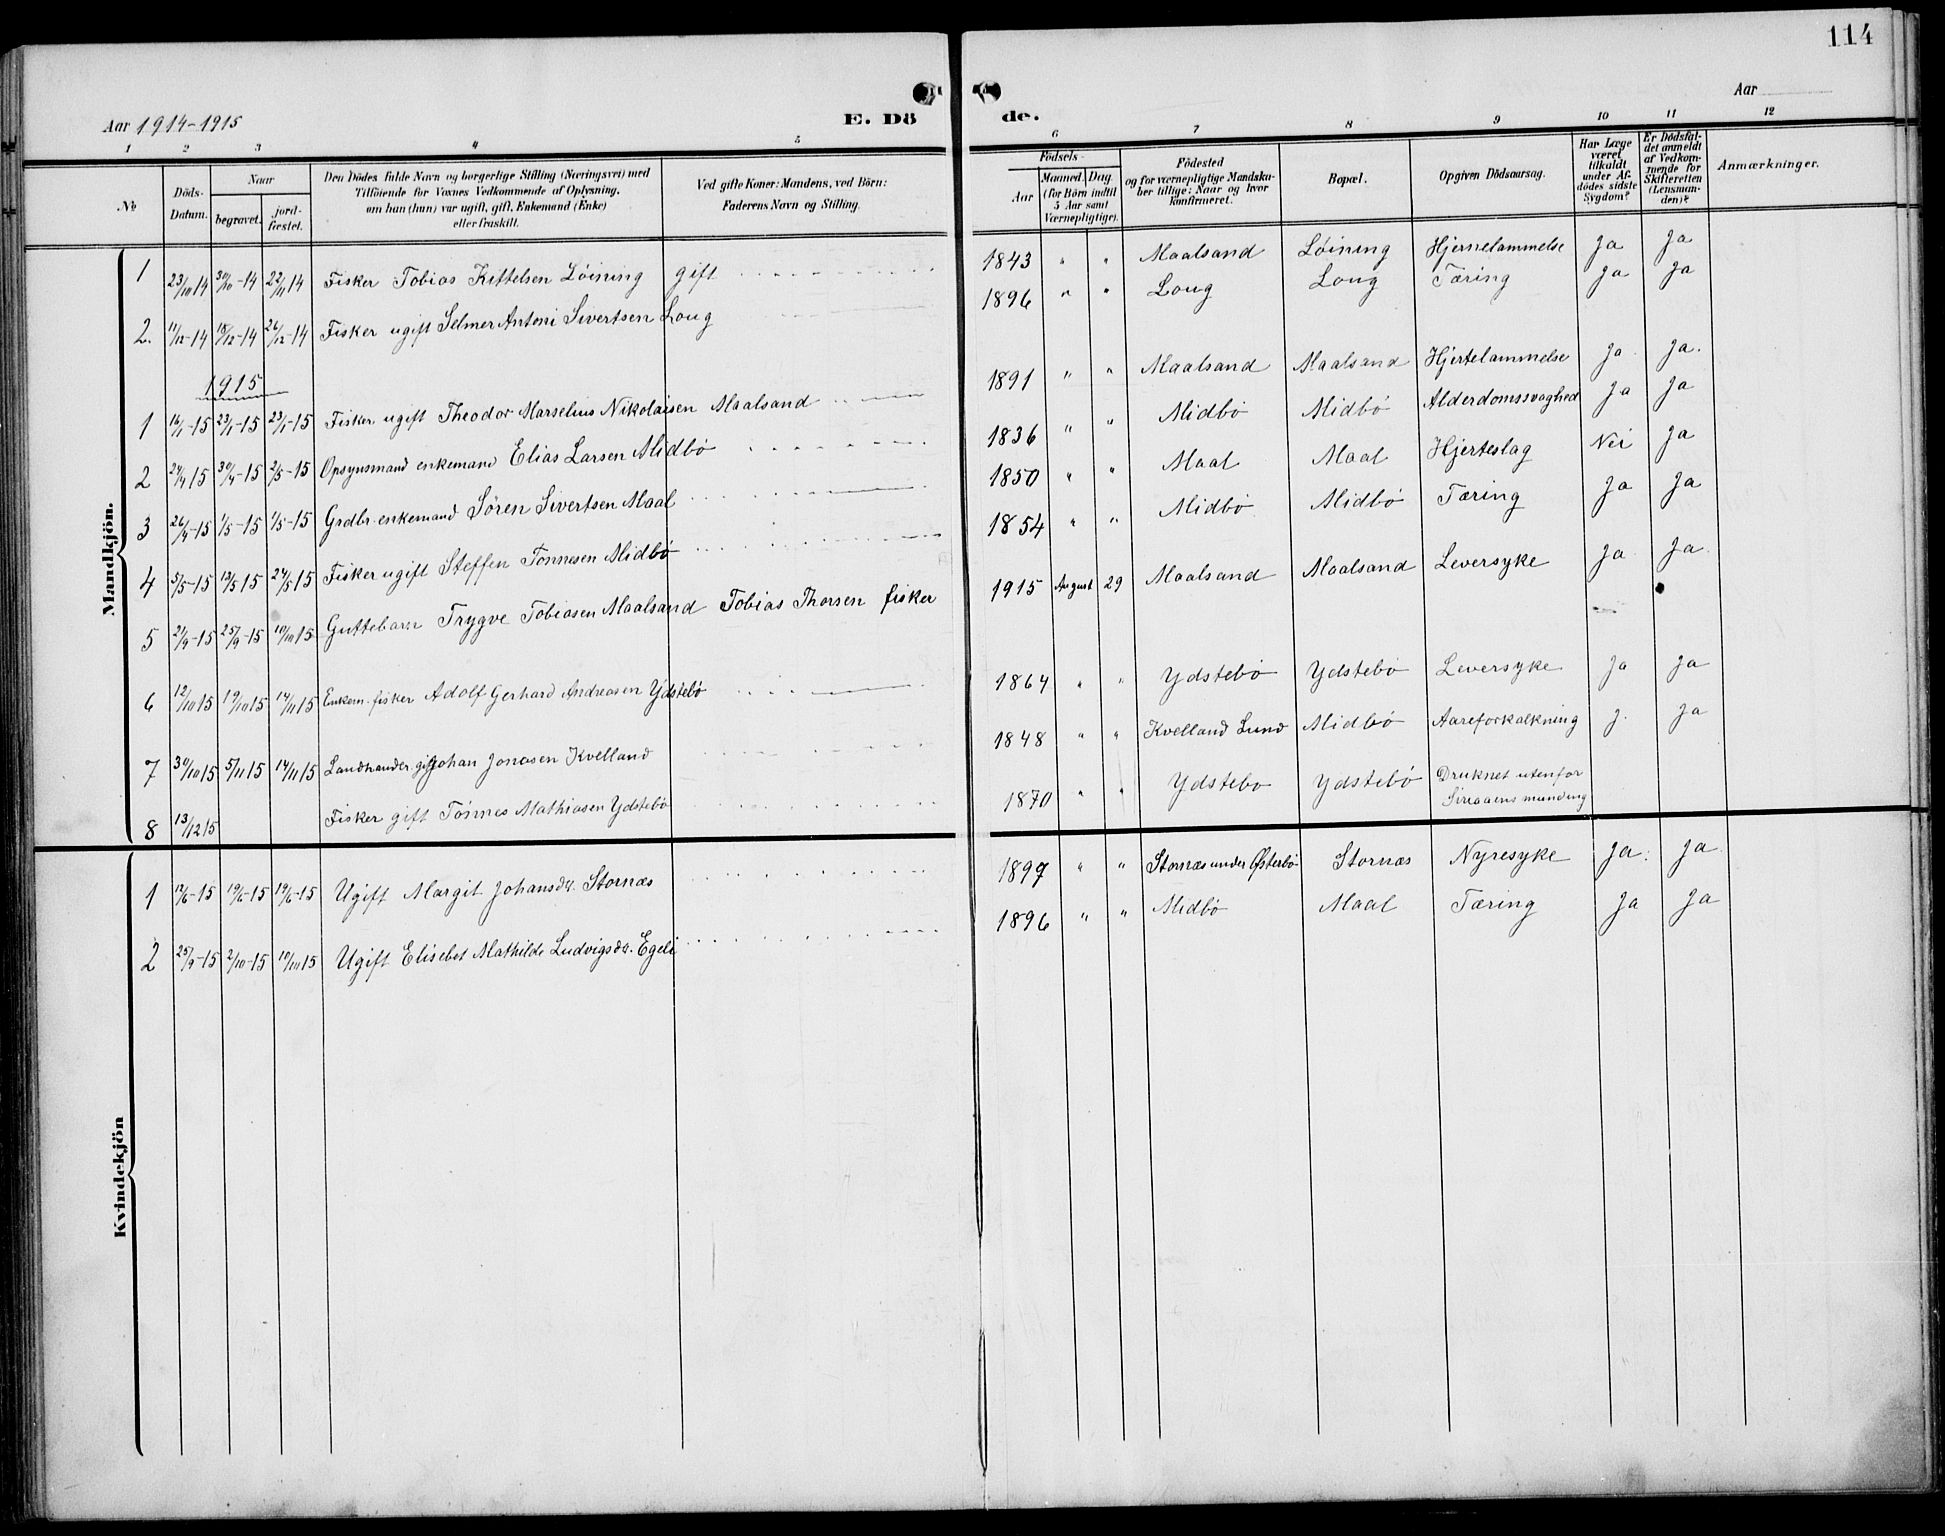 114
Aar 1914-1915
E. Dö
de.
Aar
1 2 3 4 5 6 7 8 9 10 11 12
No
Döds-Datum.
Naar
begravet.
jord-fæstet.
Den Dödes fulde Navn og borgerlige Stilling (Næringsvei) med
Tilföiende for Voxnes Vedkommende af Oplysning,
om han (hun) var ugift, gift, Enkemand (Enke)
eller fraskilt.
Ved gifte Koner: Mandens, ved Börn:
Faderens Navn og Stilling.
Födsels-
Aar
Maaned. Dag.
(for Börn indtil
5 Aar samt
Værnepligtige).
Födested
og for værnepligtige Mandska-
ber tillige: Naar og hvor
konfirmeret.
Bopæl.
Opgiven Dödsaarsag.
Har Læge
været
tilkaldt
under Af-
dödes sidste
Sygdom?
Er Dödsfal-
det anmeldt
af Vedkom-
mende for
Skifteretten
(Lensman-
den)?
Anmærkninger.
Mandkjön.
1 23/10 14 30/10-14 22/11 14 Fisker Tobias Kittelsen Löining gift 1843 " " Maalsand Löining Hjernelammelse Ja Ja
2. 11/12-14 18/12-14 26/12-14 Fisker ugift Selmer Antoni Sivertsen Loug 1896 " " Loug Loug Tæring Ja Ja
1915
1 16/1-15 23/1-15 23/1-15 Fisker ugift Theodor Marselius Nikolaisen Maalsand 1891 " " Maalsand Maalsand Hjertelammelse Ja Ja.
2 24/4 15 30/4-15 2/5-15 Opsynsmand enkemand Elias Larsen Midbö 1836 " " Midbö Midbö Alderdomssvaghed Ja Ja
3 26/4-15 1/5-15 1/5-15 Grdbr. enkemand Sören Sivertsen Maal 1850 " " Maal Maal Hjerteslag Nei Ja
4 5/5-15 13/5 15 24/5 15 Fisker ugift Steffen Tönnesen Midbö 1854 " " Midbö Midbö Tæring Ja Ja
5 21/9-15 25/9-15 10/10 15 Guttebarn Trygve Tobiasen Maalsand Tobias Thorsen fisker 1915 August 29 Maalsand Maalsand Leversyke Ja Ja
6 12/10 15 19/10 15 14/11 15 Enkem. fisker Adolf Gerhard Andreasen Ydstebö 1864 " " Ydstebö Ydstebö Leversyke Ja Ja
7 30/10 15 5/11 15 14/11 15 Landhander. gift Johan Jonasen Kvelland 1848 " " Kvelland Lund Midbö Aareforkalkning J. Ja
8 13/12 15 Fisker gift Tönnes Mathiasen Ydstebö 1870 " " Ydstebo Ydstebö Druknet utenfor
Sireaaens munding
Kvindekjön
1 12/6-15 19/6-15 19/6-15 Ugift Margit Johansdr. Stornæs 1897 " " Stornæs under Østerbö Stornæs Nyresyke Ja. Ja
2 25/9-15 2/10-15 10/10 15 Ugift Elisebet Mathilde Ludvigsdr. Egeli 1896 " " Midbö Maal Tæring Ja Ja